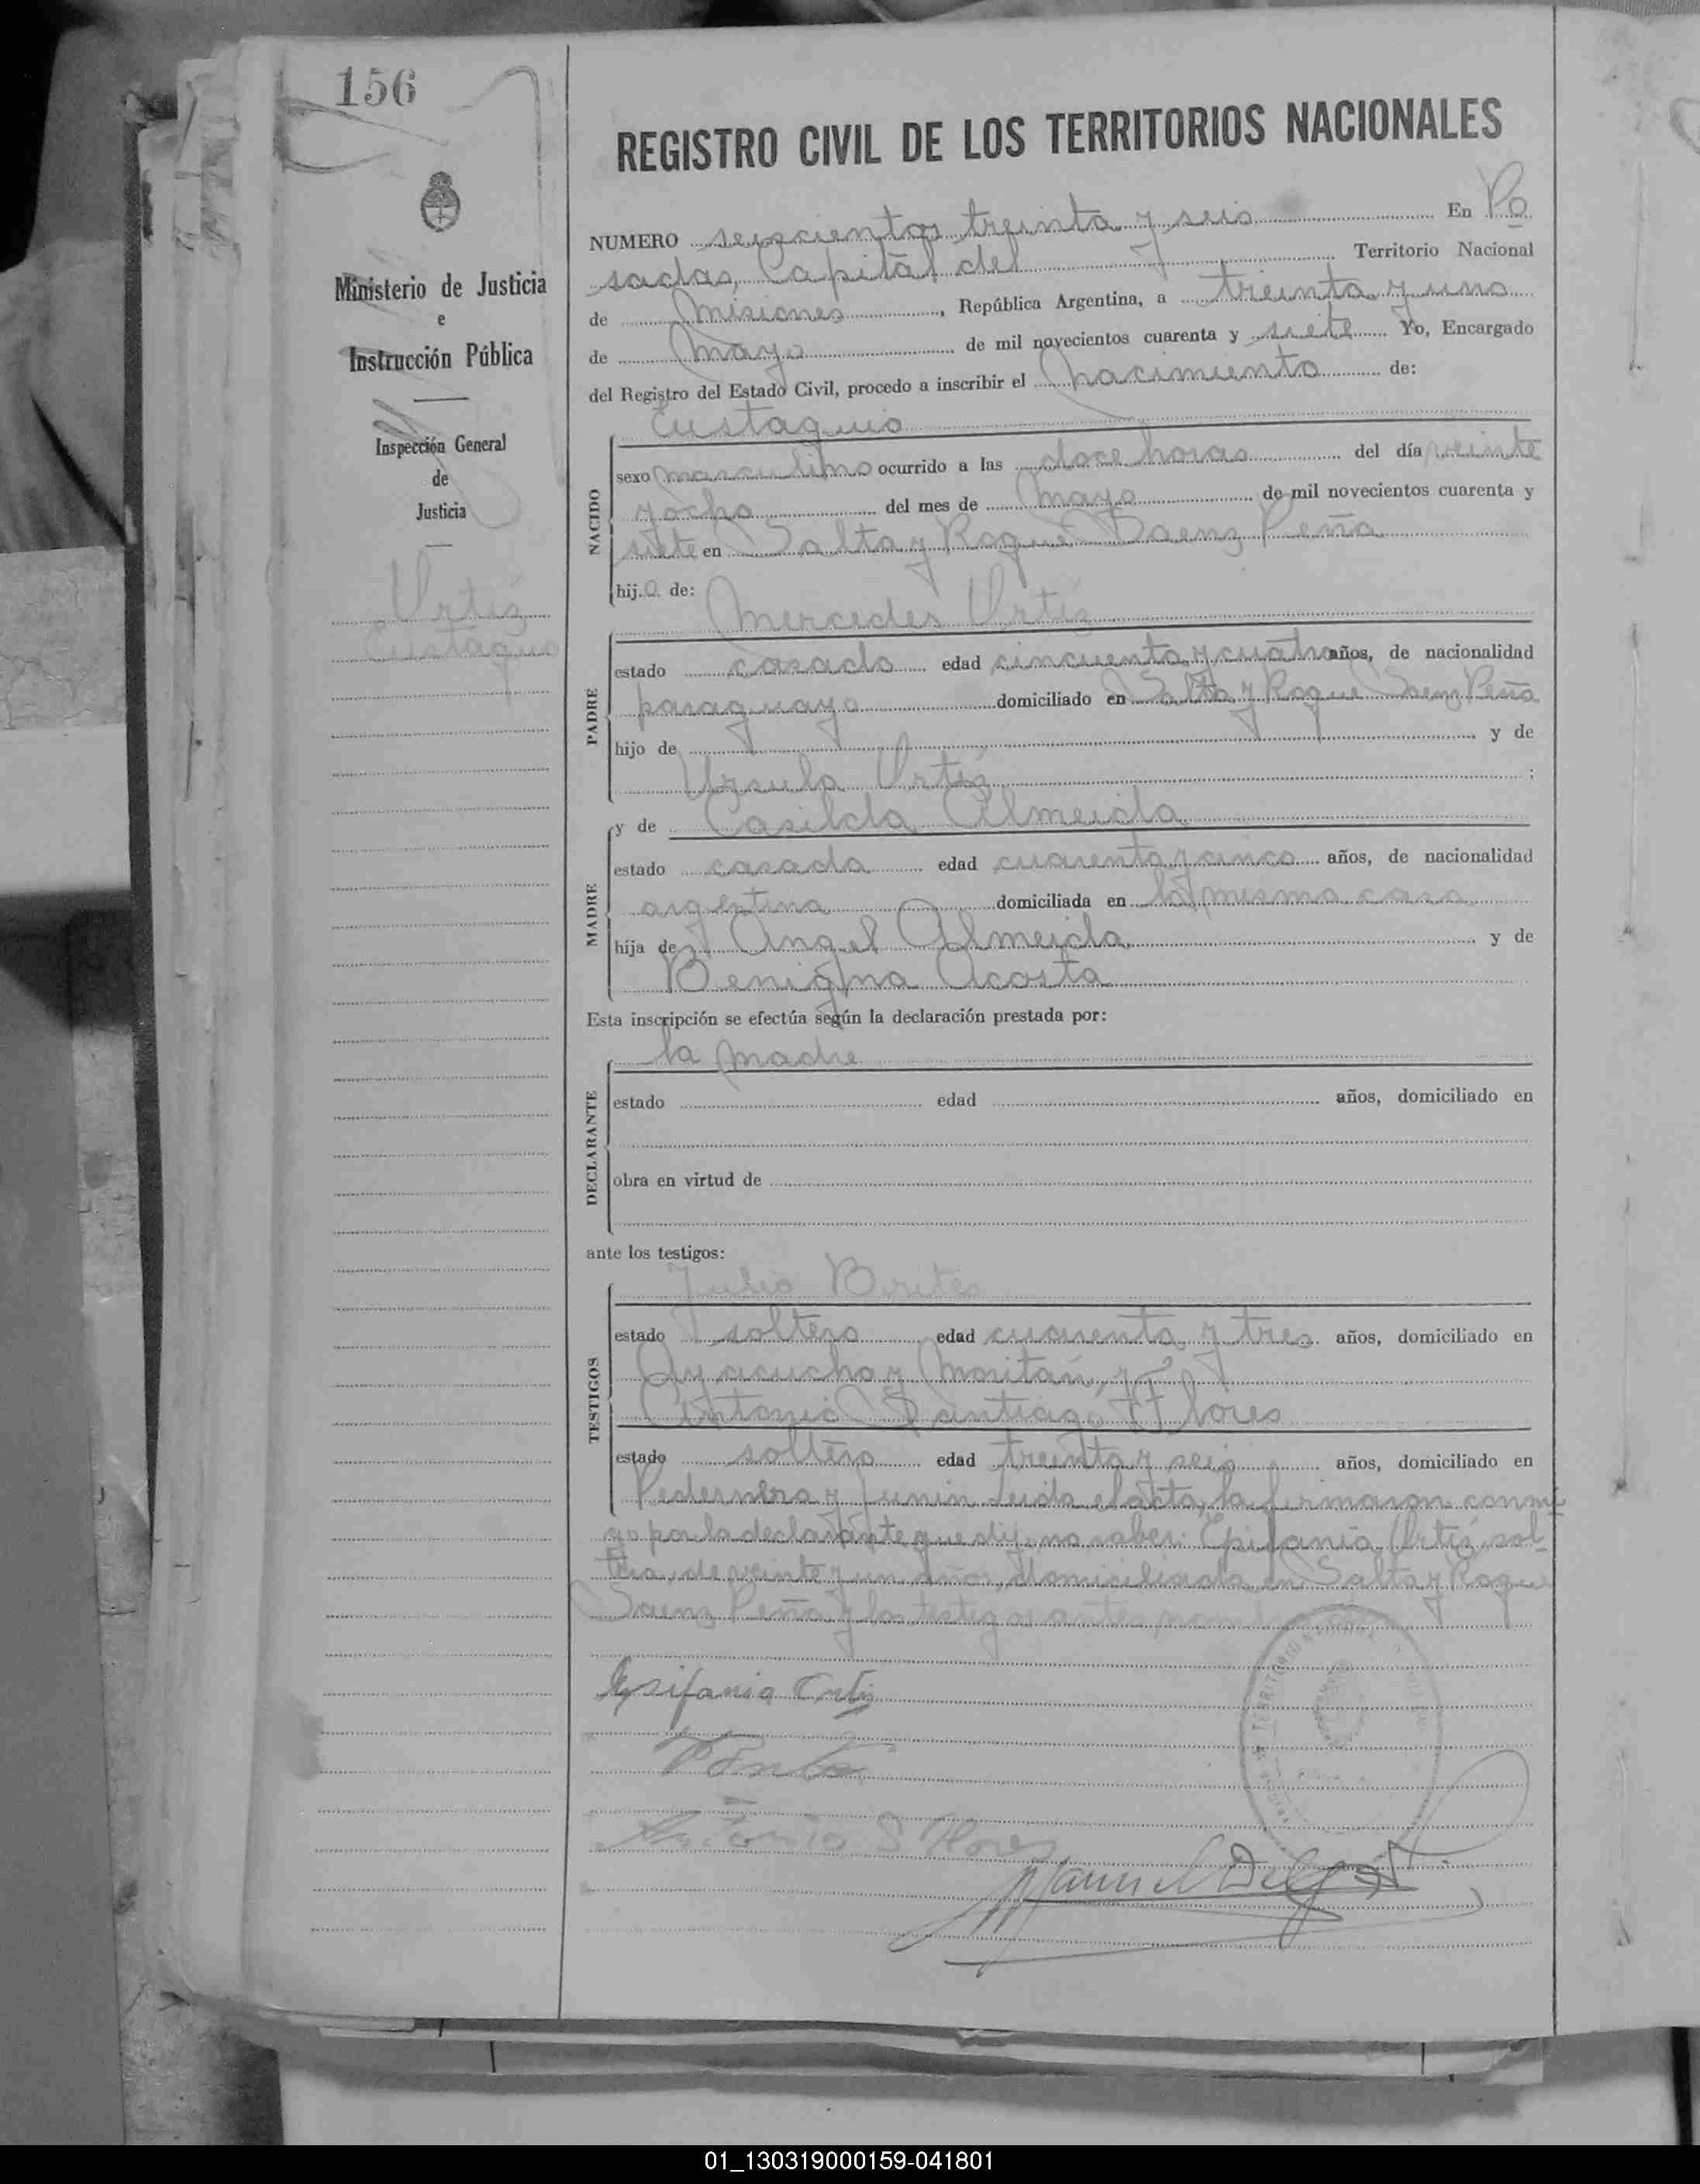 156
REGISTRO CIVIL DE LOS TERRITORIOS NACIONALES
Ministerio de Justicia
e
Instrucción Pública
Inspección General
de
Justicia
Ortíz
Eustaquio
NUMERO seiscientos treinta y seis En Po
sadas, Capital del Territorio Nacional
de Misiones, República Argentina, a treinta y uno
de mayo de mil novecientos cuarenta y siete Yo, Encargado
del Registro del Estado Civil, procedo a inscribir el nacimiento de:
Eustaquio
NACIDO
sexo masculino ocurrido a las doce horas del día veinte
y ocho del mes de mayo de mil novecientos cuarenta y
siete en Salta y Roque Saenz Peña
hijo de:
Mercedes Ortíz
PADRE
estado casado edad cincuenta y cuatro años, de nacionalidad
paraguayo domiciliado en Salta y Roque Saenz Peña
hijo de y de
Ursula Ortíz ;
y de Casilda Almeida
MADRE
estado casada edad cuarenta y cinco años, de nacionalidad
argentina domiciliada en la misma casa
hija de Angel Almeida y de
Benigna Acosta
Esta inscripción se efectúa según la declaración prestada por:
la madre
DECLARANTE
estado edad años, domiciliado en
obra en virtud de
ante los testigos:
Julio Brites
TESTIGOS
estado soltero edad cuarenta y tres años, domiciliado en
Ayacucho y Moritán, y
Antonio Santiago Flores
estado soltero edad treinta y seis años, domiciliado en
Pedernera y Junin Leida el acta, la firmaron conmi
go por la declarante que dijo no saber: Epifania Ortíz, sol-
tera, de veinte y un años, domiciliada en Salta y Roque
Saenz Peña y los testigos antes
Epifania Ortiz
Antonio S Flores
TERRITORIO NACIONAL
Manuel
01_130319000159-041801